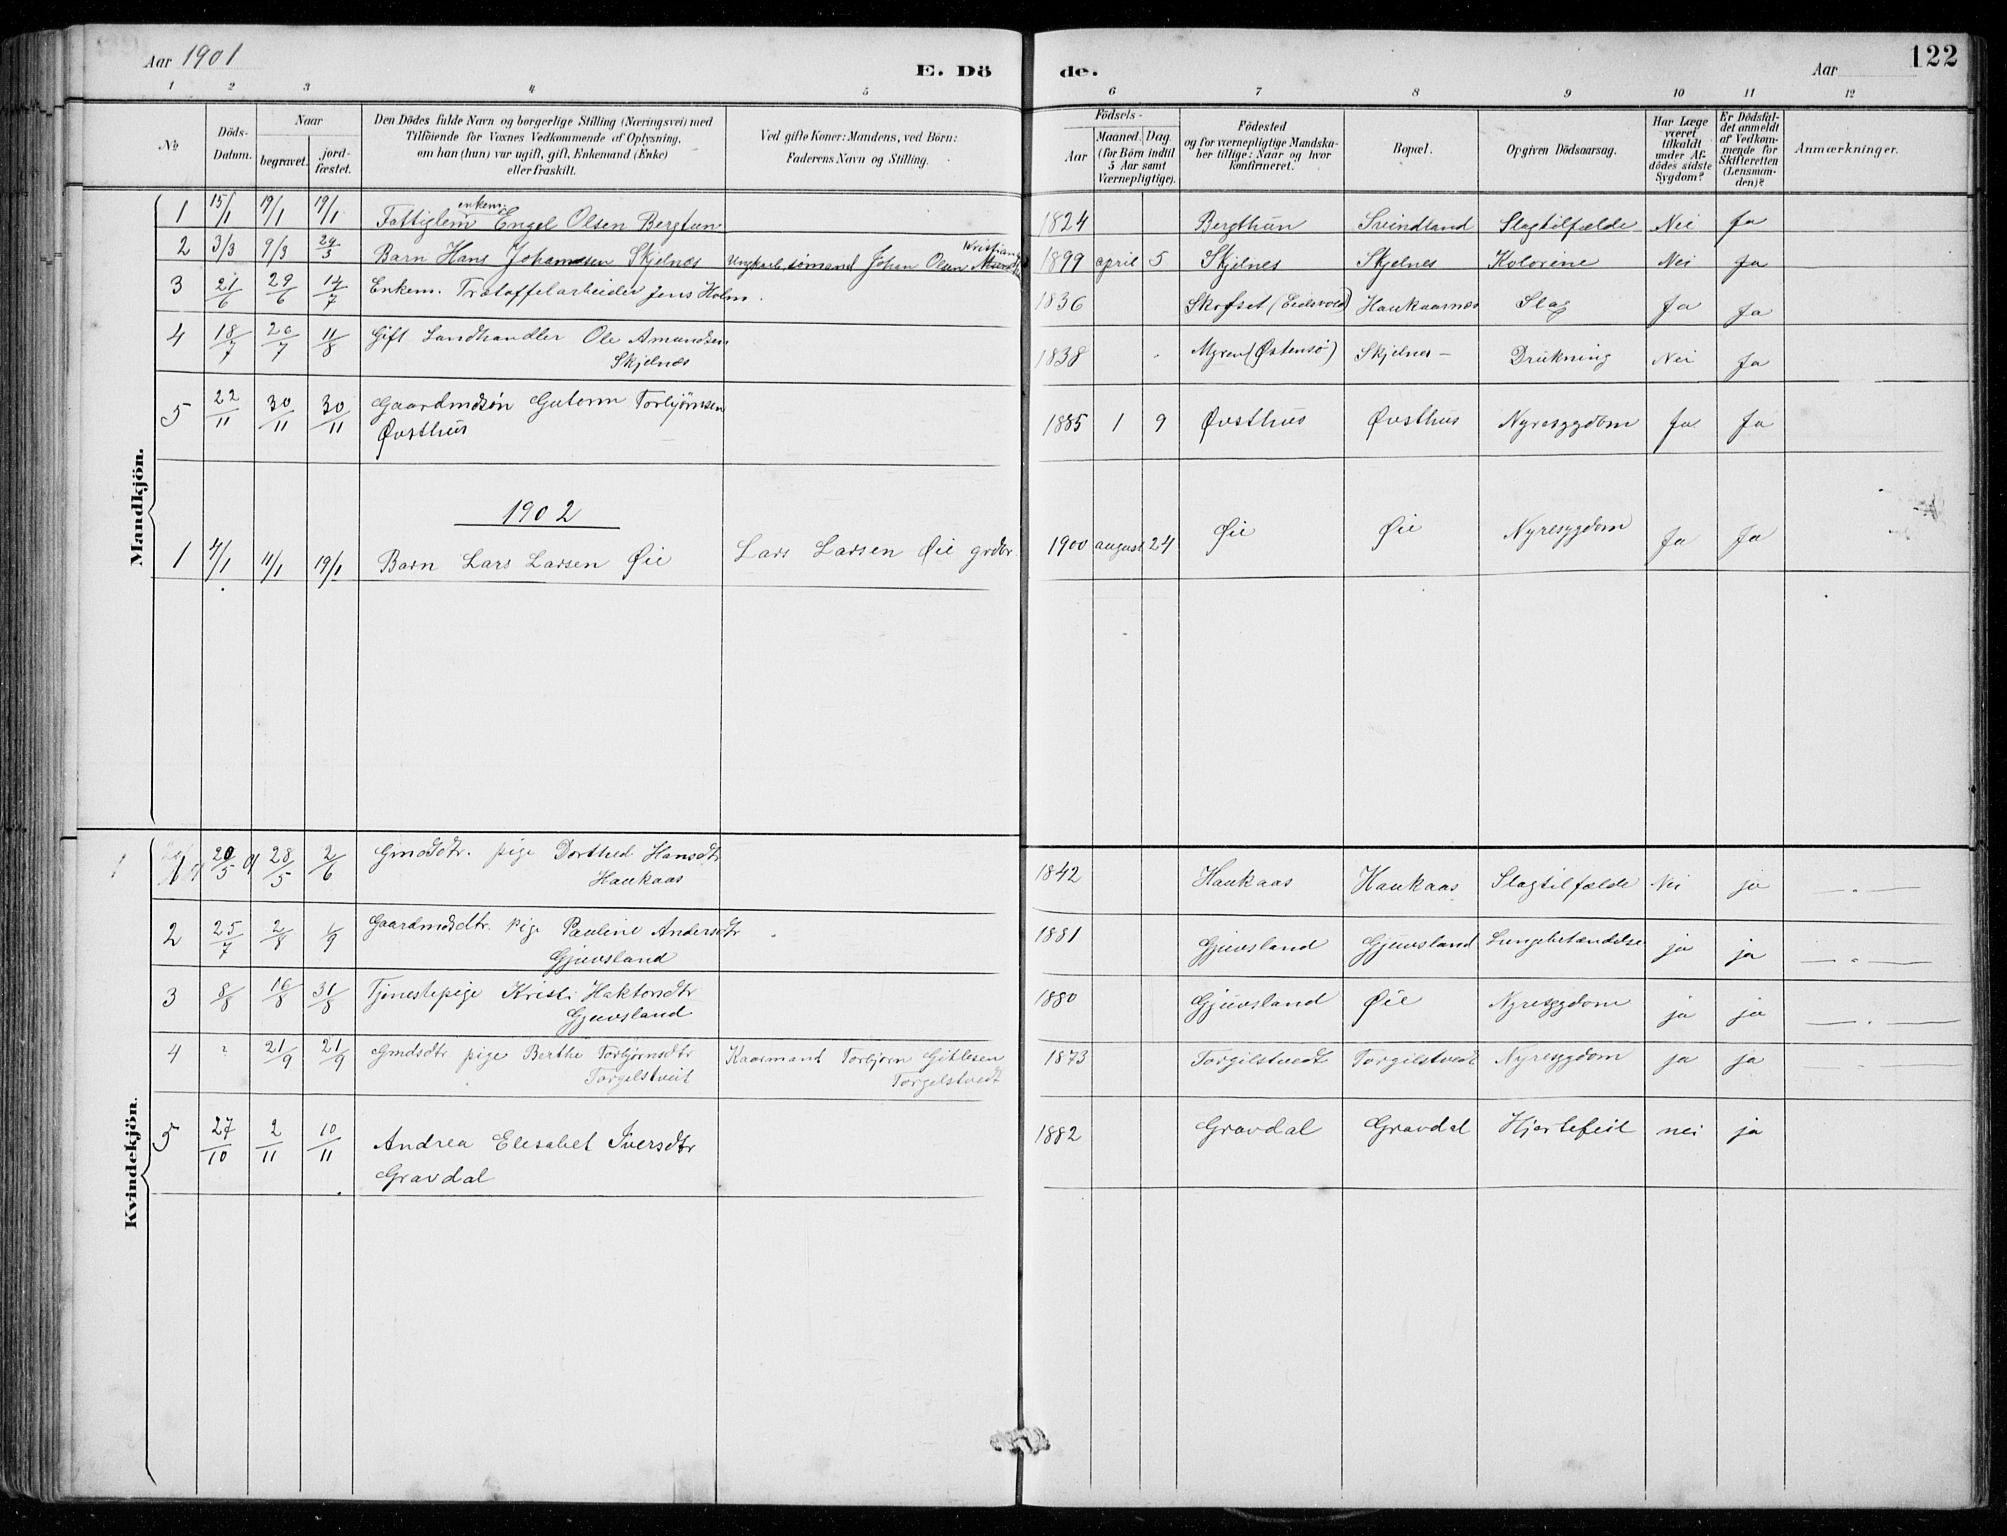 Aar 1901
E. Dö
de.
Aar
122
1 2 3 4 5 6 7 8 9 10 11 12
№
Döds-Datum.
Naar
begravet.
jord-fæstet.
Den Dödes fulde Navn og borgerlige Stilling (Næringsvei) med
Tilföiende for Voxnes Vedkommende af Oplysning,
om han (hun) var ugift, gift, Enkemand (Enke)
eller fraskilt.
Ved gifte Koner: Mandens, ved Börn:
Faderens Navn og Stilling.
Födsels-
Aar
Maaned.
Dag
(for Börn indtil
5 Aar samt
Værnepligtige).
Födested
og for værnepligtige Mandska-
ber tillige: Naar og hvor
konfirmeret.
Bopæl.
Opgiven Dödsaarsag.
Har Læge
været
tilkaldt
under Af-
dödes sidste
Sygdom?
Er Dödsfal-
det anmeldt
af Vedkom-
mende for
Skifteretten
(Lensman-
den)?
Anmærkninger.
Mandkjön.
enkem.
1 15/1 19/1 19/1 Fattiglem Engel Olsen Bergtun 1824 Bergthun Svindland Slagtilfælde Nei Ja
2 3/3 9/3 29/3 Barn Hans Johansen Skjelnes Ungkarl, sömand Johan Olsen 1899 april 5 Skjelnes Skjelnes Kolorine Nei Ja
3 21/6 29/6 14/7 Enkem. Trætøffelarbeider Jens Holm. 1836 Skofset (Eidsvold) Haukaasnes Slag Ja Ja
4 18/7 26/7 11/8 Gift Landhandler Ole Amundsen 1838 Myren (Østensö) Skjelnes – Drukning Nei Ja
Skjelnes
5 22/11 30/11 30/11 Gaardmdsön Gutorm Torbjörnsen 1885 1 9 Øvsthus Øvsthus Nyresygdom Ja Ja
Øvsthus
1902
1 4/1 11/1 19/1 Barn Lars Larsen Øie Lars Larsen Øie grdbr 1900 august 24 Øie Øie Nyresygdom Ja Ja
Kvindekjön.
1 20/5 01 28/5 2/6 Gmdsdtr. pige Dorthed Hansdtr 1842 Haukaas Haukaas Slagtilfælde Nei ja — " —
Haukaas
2 25/7 2/8 1/9 Gaardmdsdtr. pige Pauline Andersdtr 1881 Gjuvsland Gjuvsland Lungebetændelse ja ja — " —
Gjuvsland
3 8/8 16/8 31/8 Tjenestepige Kristi Haktorsdtr 1880 Gjuvsland Øie Nyresygdom ja ja — " —
Gjuvsland
4 ? 21/9 21/9 Gmdsdtr pige Berthe Torbjörnsdtr Kaarmand Torbjörn Gitlesen 1873 Torgilstvedt Torgilstvedt Nyresygdom ja ja — " —
Torgelstveit Torgelstvedt
5 27/10 2/11 10/11 Andrea Elisabet Iversdtr 1882 Gravdal Gravdal Hjertefeil nei ja
Gravdal